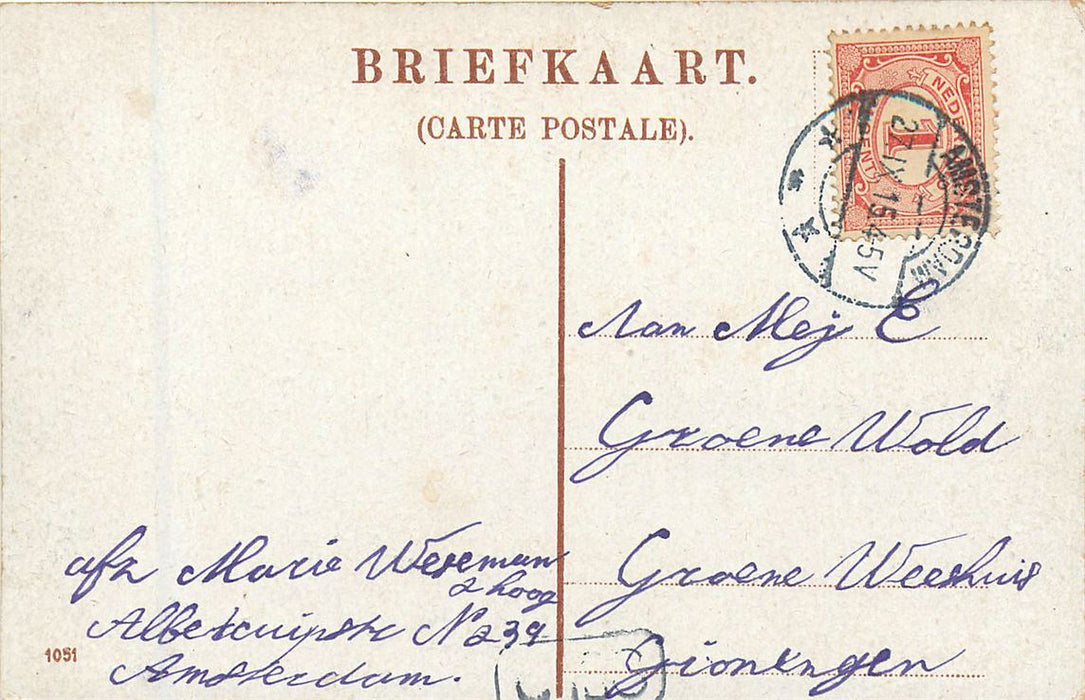 BRIEFKAART.
(CARTE POSTALE).
1 NEDE
1
CENT
AMSTERDAM
27 IX 15 4-5V
Aan Mej E
Groene Wold
Groene Weeshuis
Groningen
afz Marie Weseman
2 hoog
Albertcuipstr N 239
Amsterdam.
1051